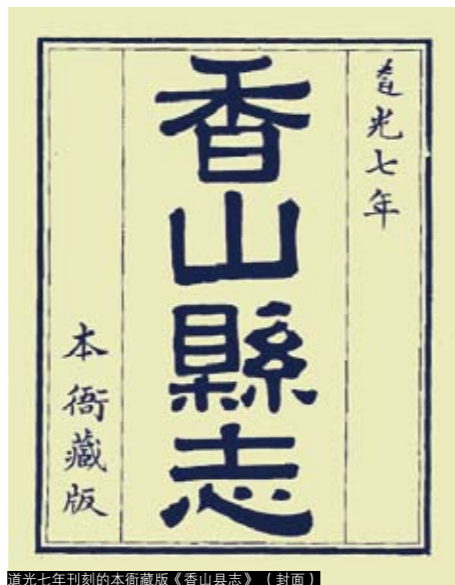 道光七年
香山縣志
本衙藏版
道光七年刊刻的本衙藏版《香山县志》（封面）